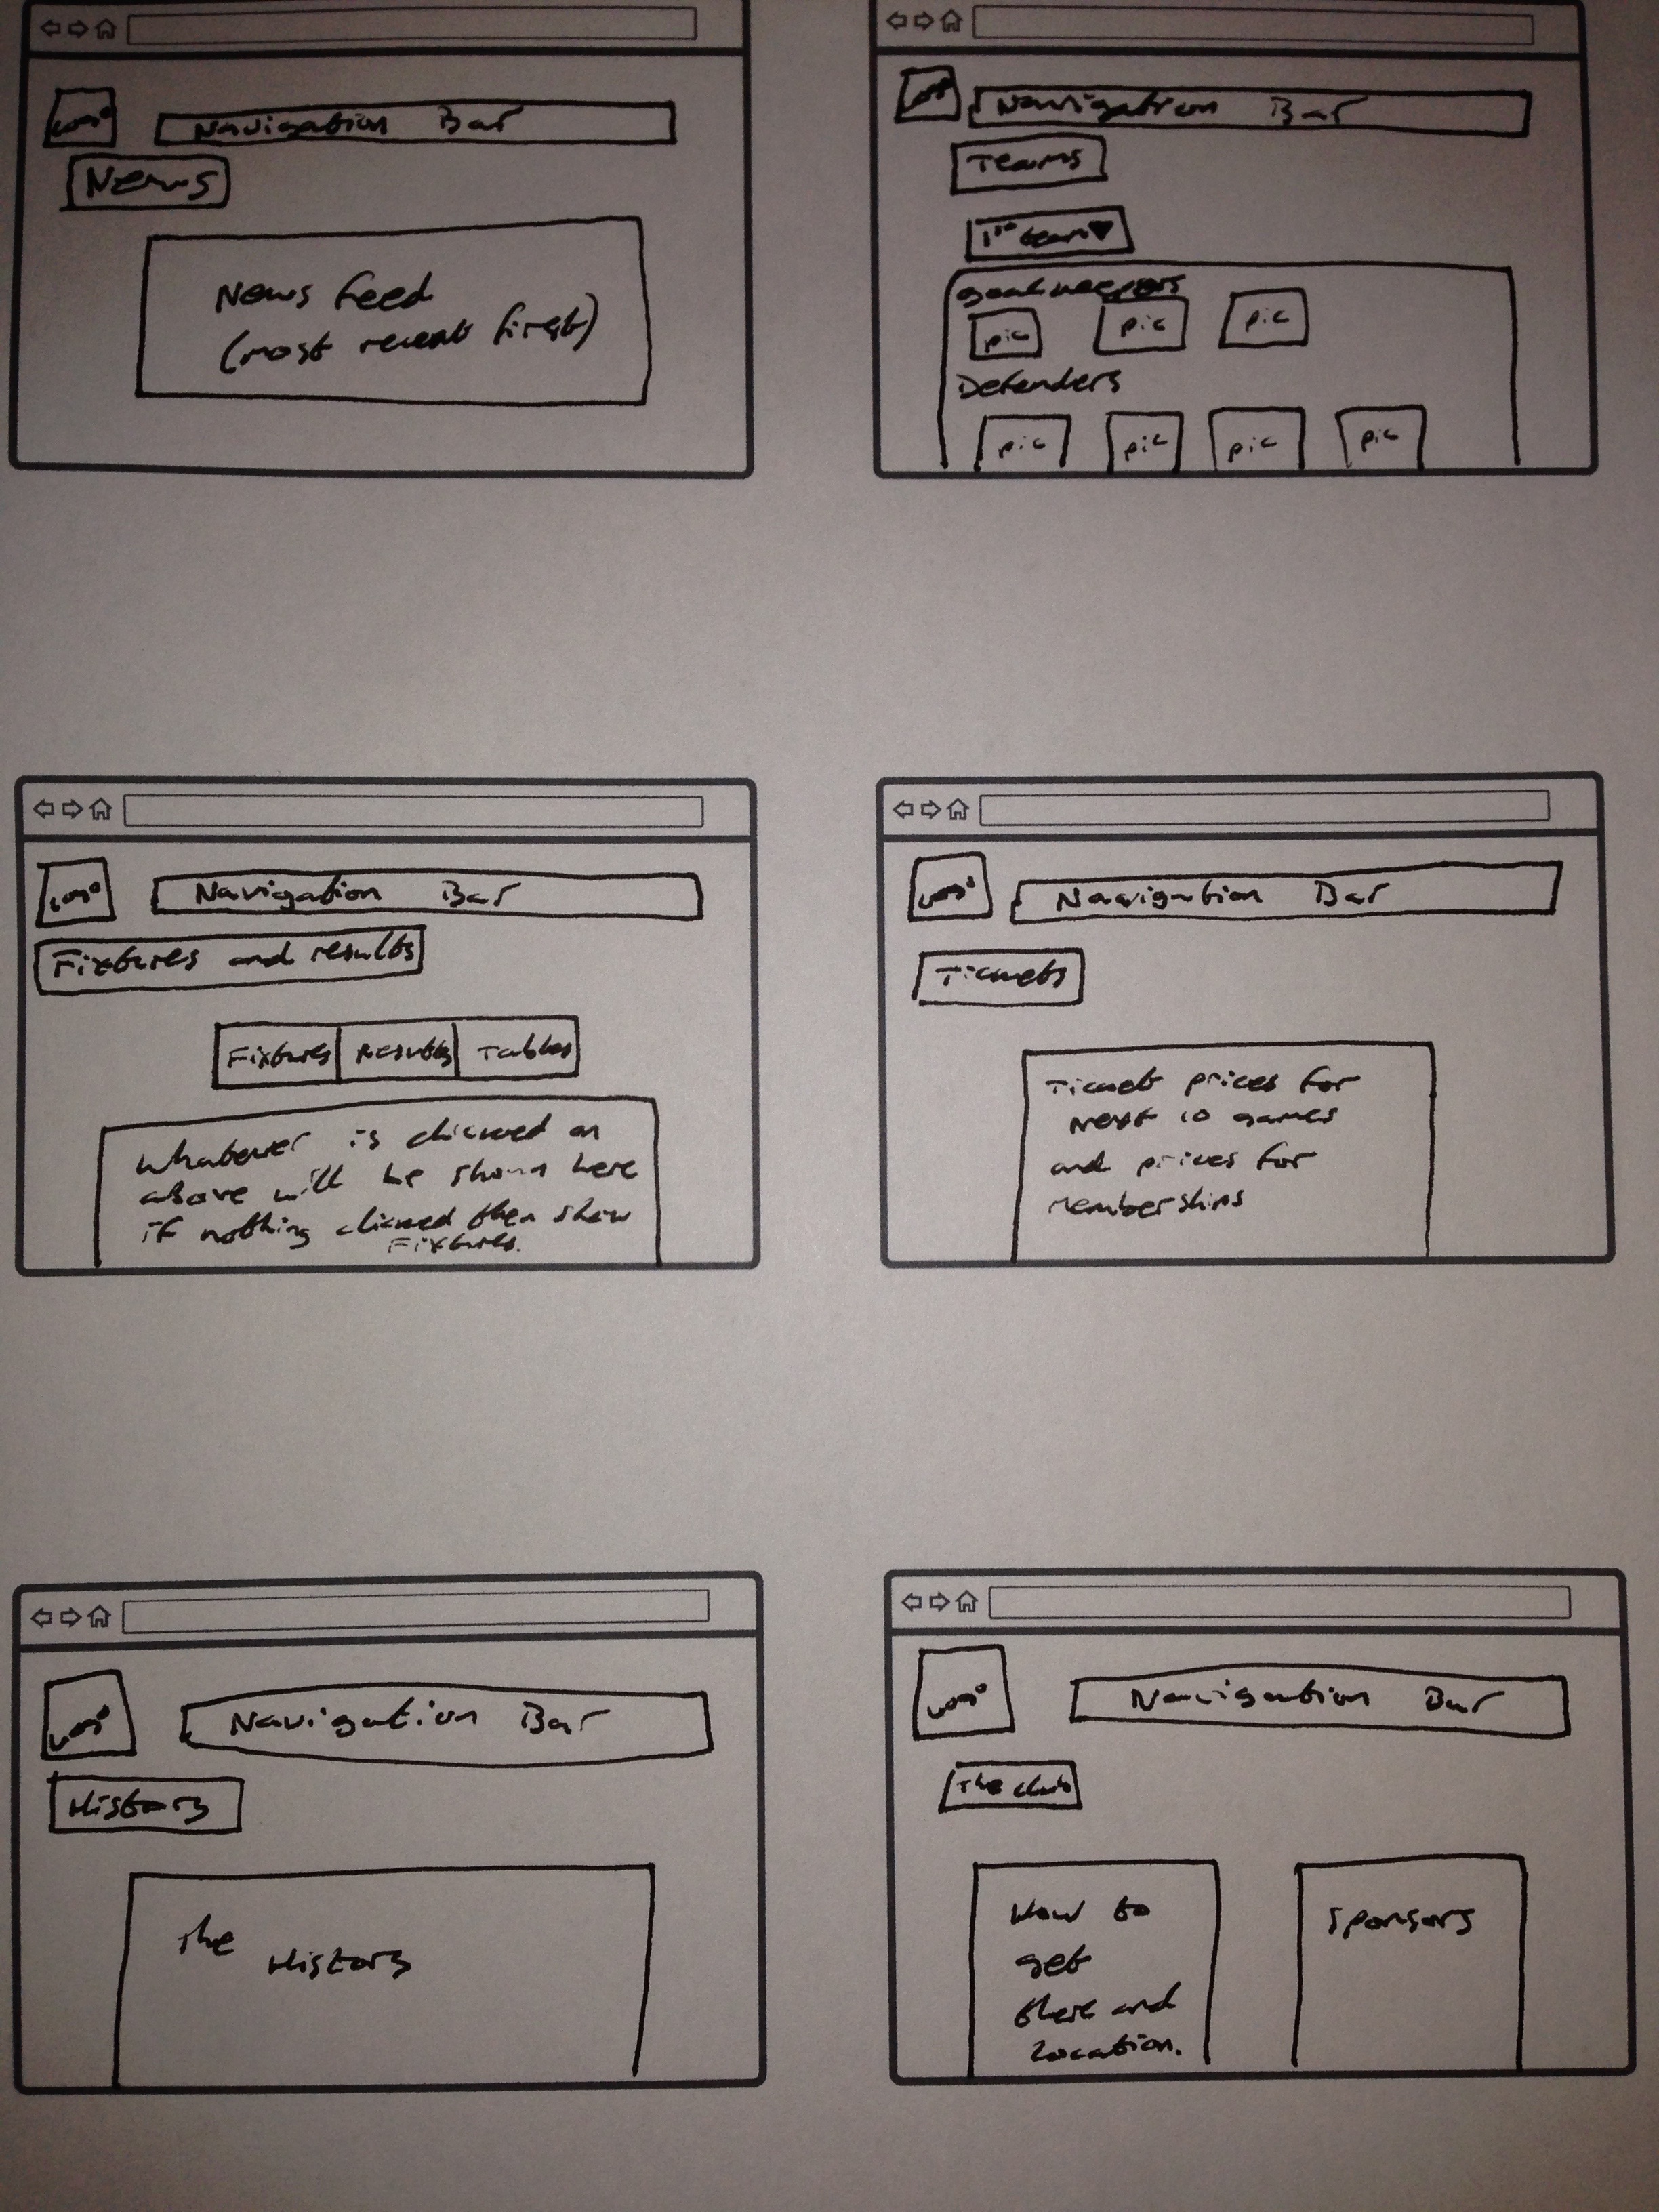 Logo
Navigation Bar
News
News feed
(most recent first)
Logo
Navigation Bar
Teams
1st team
Goalkeepers
pic pic pic
Defenders
pic pic pic pic
Logo
Navigation Bar
Fixtures and results
Fixtures Results Tables
Whatever is clicked on
above will be shown here
if nothing clicked then show
Fixtures.
Logo
Navigation Bar
Tickets
Ticket prices for
next 10 games
and prices for
memberships
Logo
Navigation Bar
History
The
History
Logo
Navigation Bar
The club
How to
get
there and
location.
Sponsors